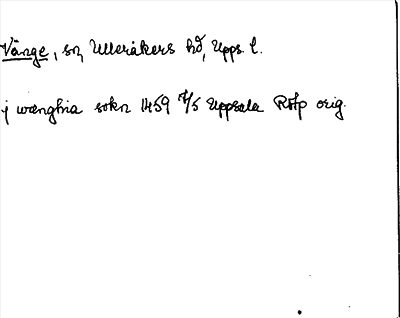 Vänge, sn, Ulleråkers hd, Upps. l.
j wænghia sokn 1459 4/5 Uppsala RAp orig.